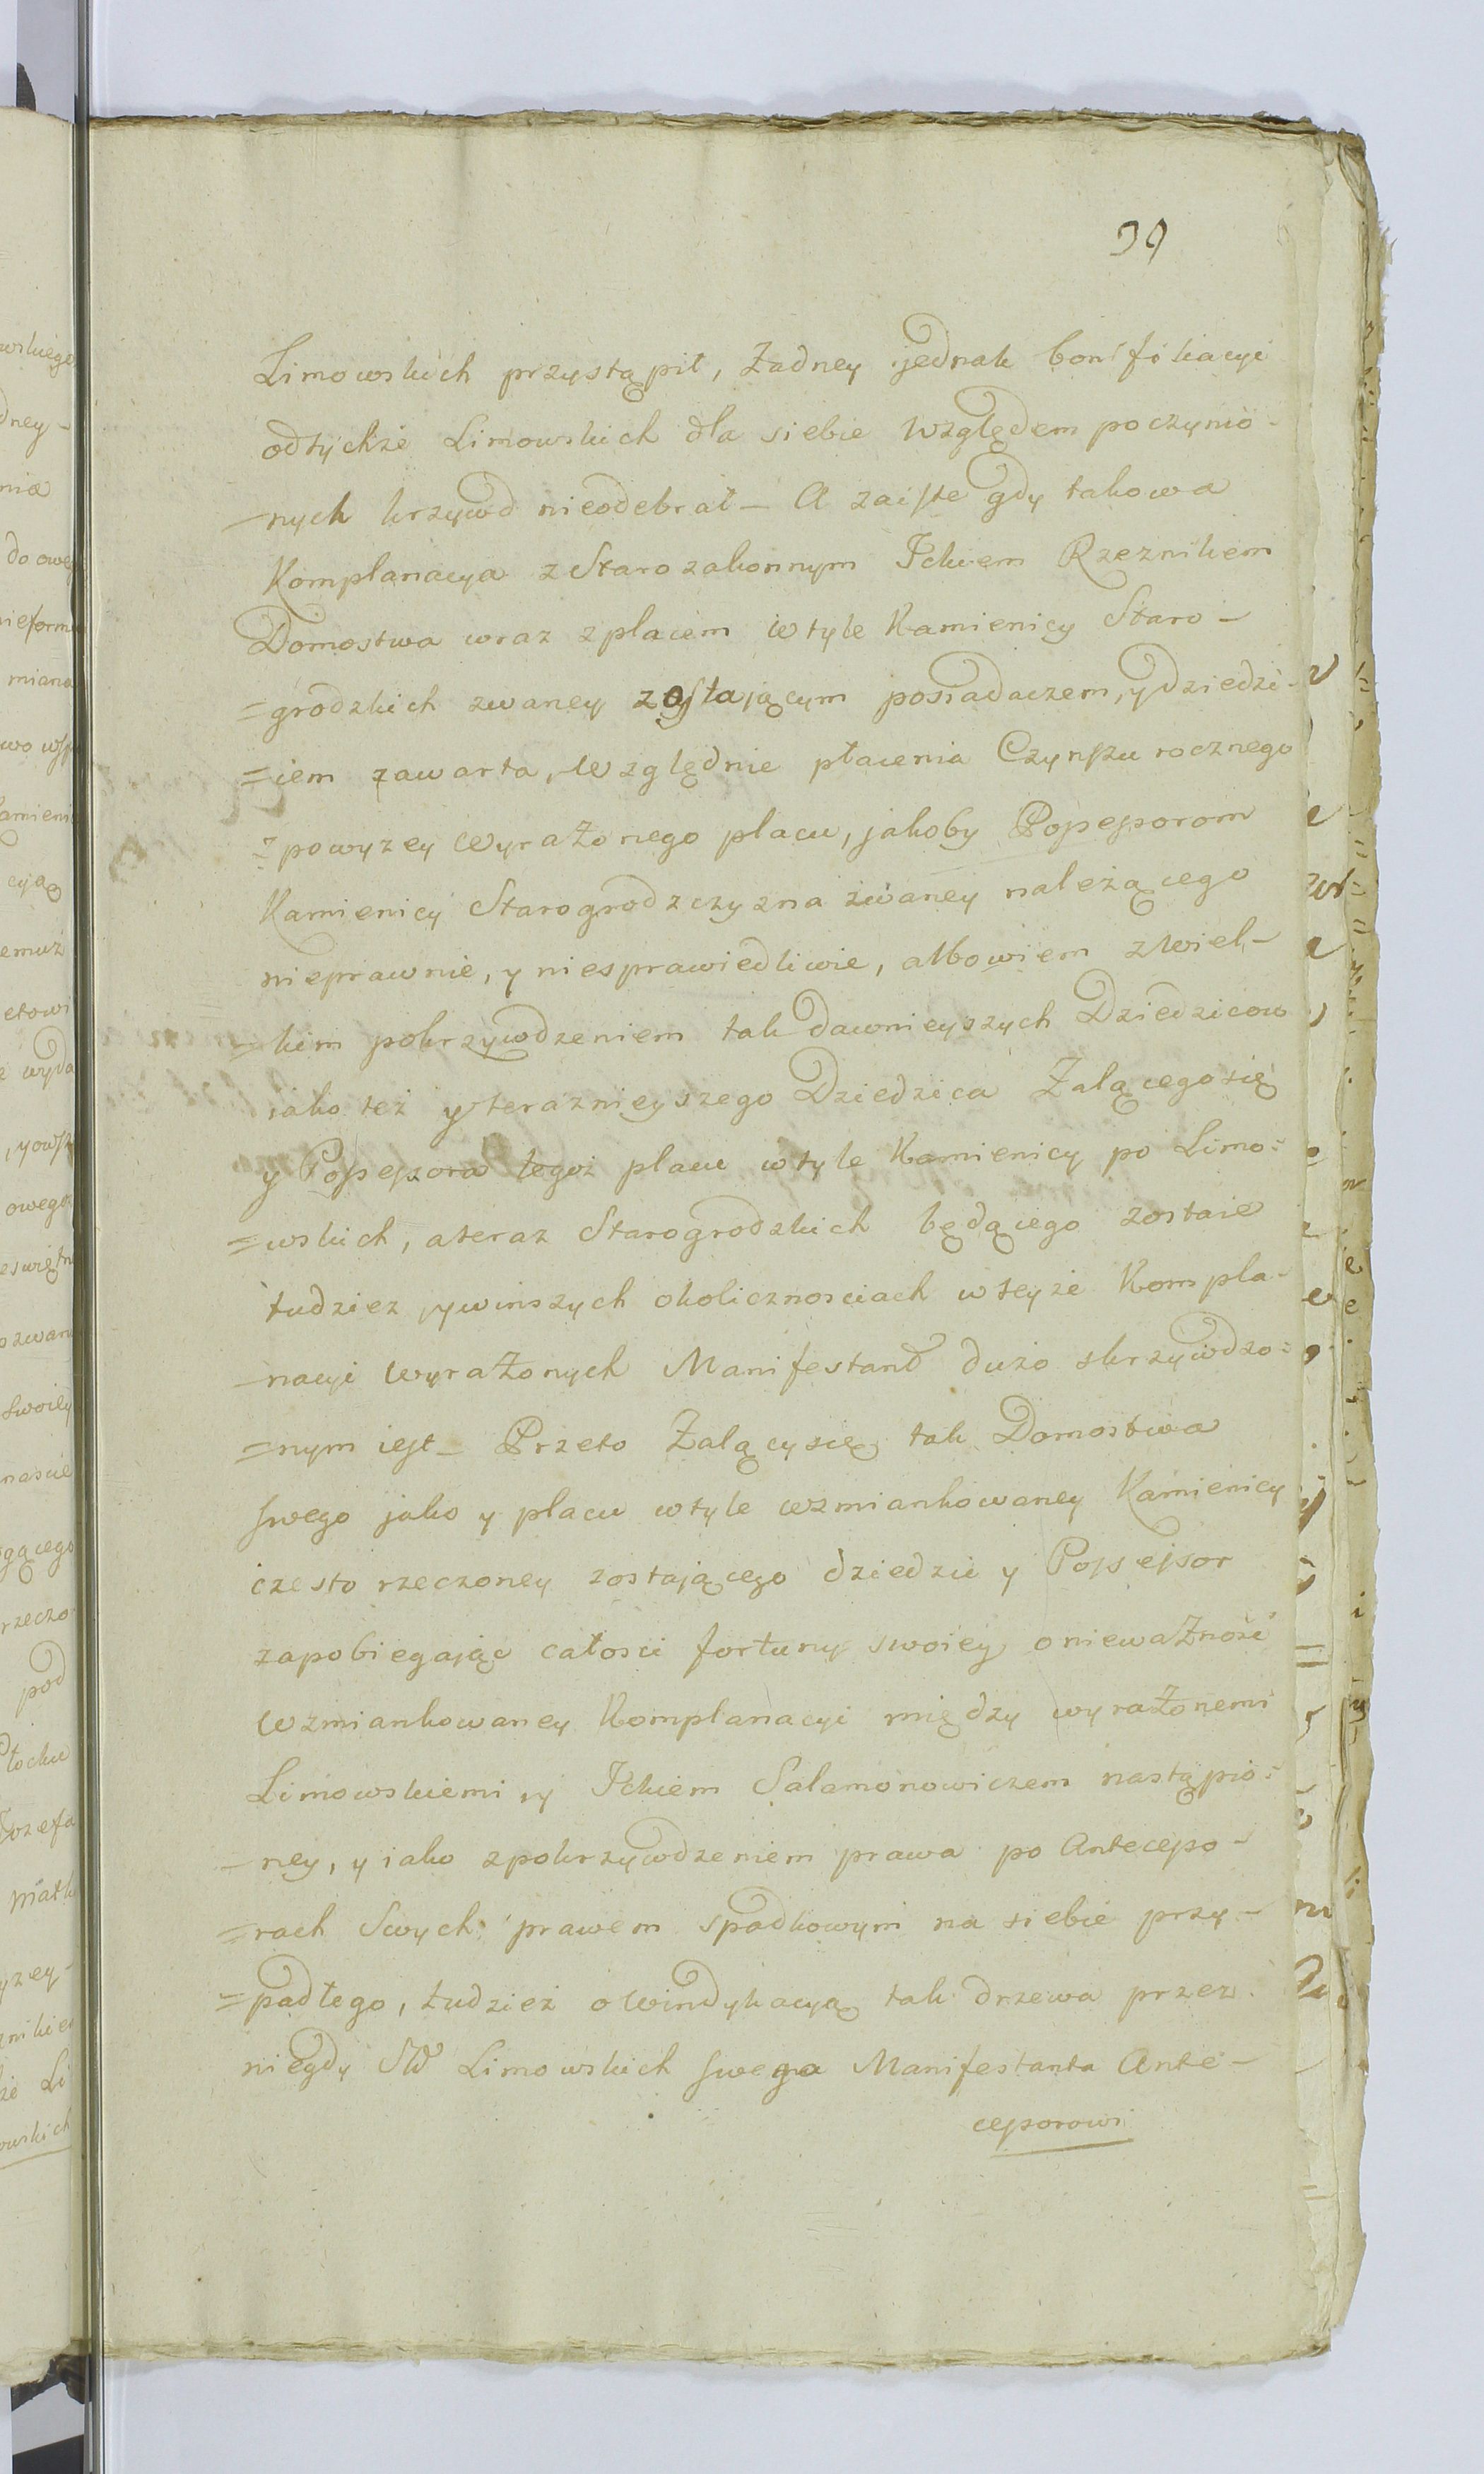 39
Limowskich przystąpił, Żadney jednak bonifikacyi
odtychże Limowskich dla siebie Względem poczynio-
-nych krzywd nieodebrał - A zaiste gdy takowa
Komplanacya z Starozakonnym Ickiem Rzeznikiem
Domostwa wraz z placem w tyle Kamienicy Staro-
=grodzkich zwaney zostającym posiadaczem, y dziedzi-
=cem zawarta, Względnie płacenia Czynszu rocznego
z powyzey wyrażonego placu, jakoby Possessorom
Kamienicy Starogrodzczyzna zwaney należącego
nieprawnie, y niesprawiedliwie, albowiem z Wiel-
-kim pokrzywdzeniem tak dawnieyszych Dziedzicow
iako też y teraznieyszego Dziedzica Żalącego się
y Possessora tegoż placu w tyle Kamienicy po Limo=
=wskich, a teraz Starogrodzkich będącego zostaie
tudziez y winszych okolicznosciach w teyże Kompla-
-nacyi wyrażonych Manifestand dużo skrzywdzo=
=nym iest - Przeto Żalący się tak Domostwa
swego jako y placu w tyle wzmiankowaney Kamienicy
czesto rzeczoney zostającego dziedzic y Possessor
zapobiegając całosci fortuny swoiey o nieważność
wzmiankowaney Komplanacyi między wyrażonemi
Limowskiemi y Ickiem Salamonowiczem nastąpio=
-ney, y iako z pokrzywdzeniem prawa po Antecesso-
=rach Swych prawem spadkowym na siebie przy-
=padłego, tudzież o Windykacyą tak drzewa przez
niegdy SW Limowskich swego Manifestanta Ante-
cessorowi